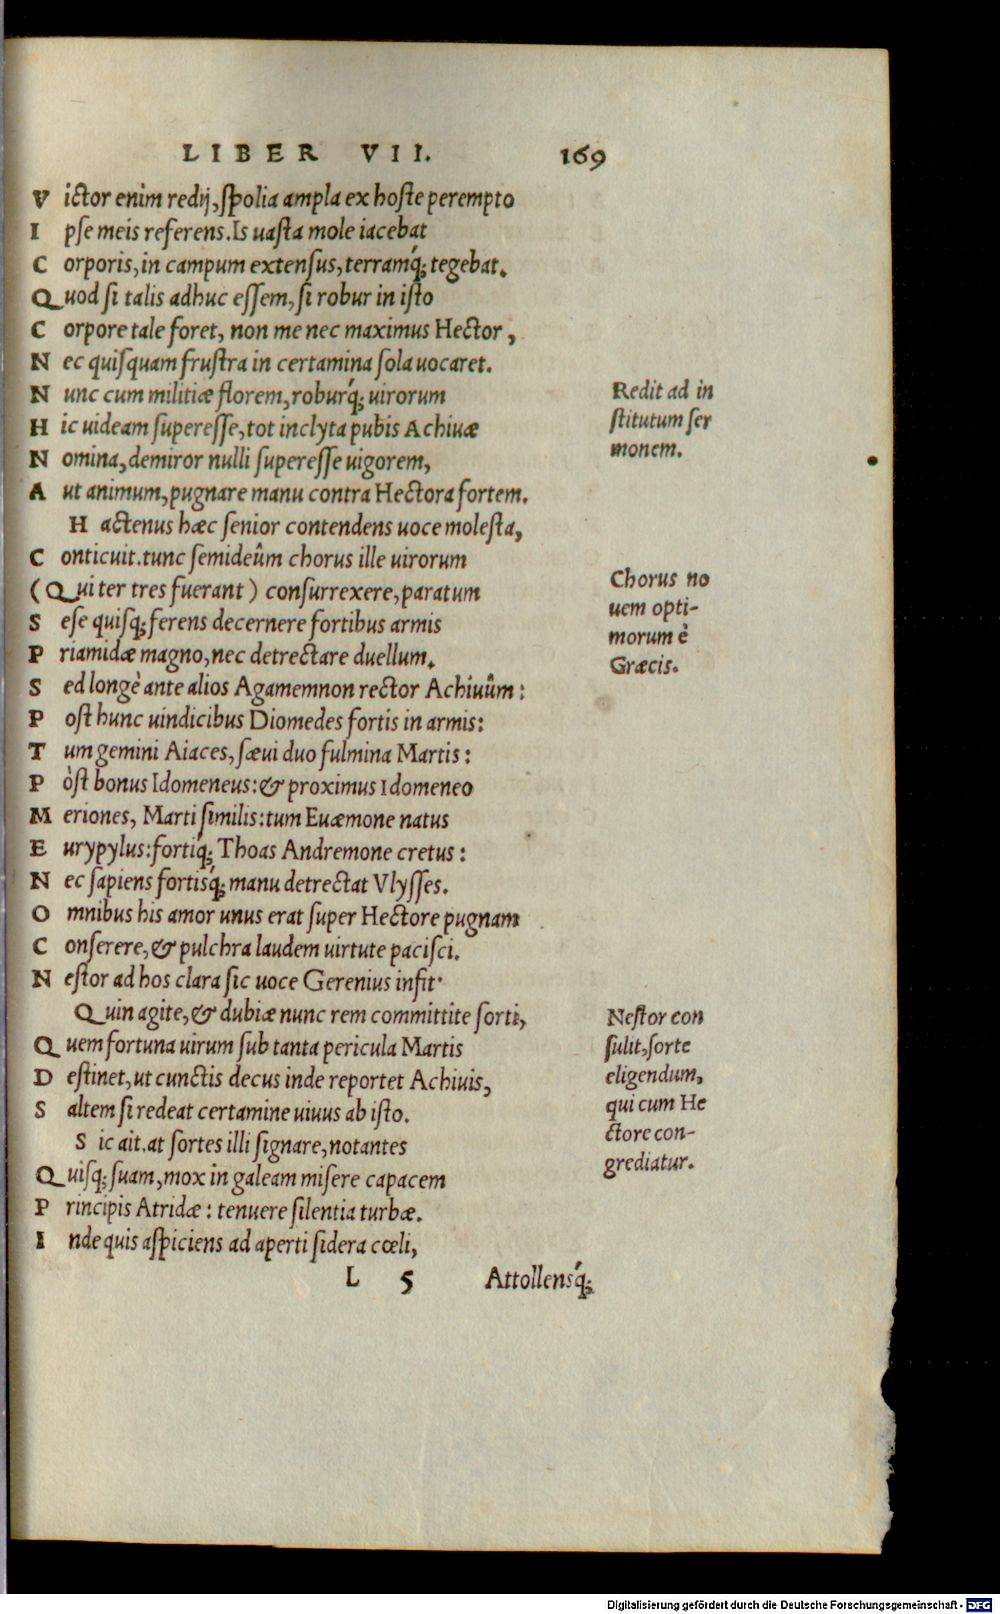 LIBER VII. 169
Victor enim redij, ſpolia ampla ex hoſte perempto
Ipſe meis referens. Is uaſta mole iacebat
Corporis, in campum extenſus, terramq́; tegebat.
Quod ſi talis adhuc eſſem, ſi robur in iſto
Corpore tale foret, non me nec maximus Hector,
Nec quiſquam fruſtra in certamina ſola uocaret.
Nunc cum militiæ florem, roburq́; uirorum
Hic uideam ſupereſſe, tot inclyta pubis Achiuæ
Nomina, demiror nulli ſupereſſe uigorem,
Aut animum, pugnare manu contra Hectora fortem.
Redit ad in
ſtitutum ſer
monem.
Hactenus hæc ſenior contendens uoce moleſta,
Conticuit. tunc ſemideûm chorus ille uirorum
(Qui ter tres fuerant) conſurrexere, paratum
Seſe quiſq; ferens decernere fortibus armis
Priamidæ magno, nec detrectare duellum.
Chorus no
uem opti-
morum è
Græcis.
Sed longè ante alios Agamemnon rector Achiuûm:
Poſt hunc uindicibus Diomedes fortis in armis:
Tum gemini Aiaces, ſæui duo fulmina Martis:
Pòſt bonus Idomeneus: & proximus Idomeneo
Meriones, Marti ſimilis: tum Euæmone natus
Eurypylus: fortiq́; Thoas Andremone cretus:
Nec ſapiens fortisq́; manu detrectat Vlyſſes.
Omnibus his amor unus erat ſuper Hectore pugnam
Conſerere, & pulchra laudem uirtute paciſci.
Neſtor ad hos clara ſic uoce Gerenius infit·
Quin agite, & dubiæ nunc rem committite ſorti,
Quem fortuna uirum ſub tanta pericula Martis
Deſtinet, ut cunctis decus inde reportet Achiuis,
Saltem ſi redeat certamine uiuus ab iſto.
Sic ait. at ſortes illi ſignare, notantes
Quiſq; ſuam, mox in galeam miſere capacem
Neſtor con
ſulit, ſorte
eligendum,
qui cum He
ctore con-
grediatur.
Principis Atridæ: tenuere ſilentia turbæ.
Inde quis aſpiciens ad aperti ſidera cœli,
L 5 Attollensq́;
Digitalisierung gefördert durch die Deutsche Forschungsgemeinschaft - DFG